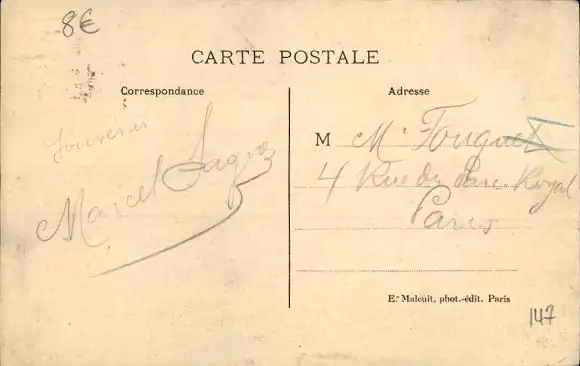 8€
CARTE POSTALE
Correspondance
Adresse
Souvenir
Marcel
M Mr Fouquet
4 Rue du Parc Royal
Paris
E. Malcuit, phot.-édit. Paris
147